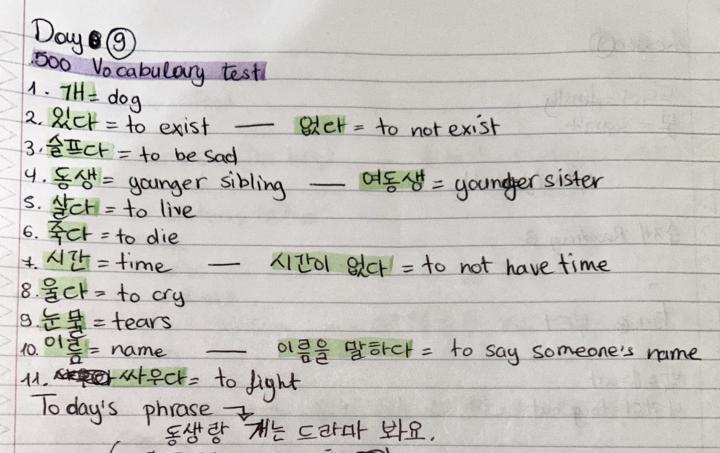 Day 9
500 Vocabulary test
1. 개 = dog
2. 있다 = to exist — 없다 = to not exist
3. 슬프다 = to be sad
4. 동생 = younger sibling — 여동생 = younger sister
5. 살다 = to live
6. 죽다 = to die
7. 시간 = time — 시간이 없다 = to not have time
8. 울다 = to cry
9. 눈물 = tears
10. 이름 = name — 이름을 말하다 = to say someone's name
11. 싸우다 = to fight
Today's phrase →
동생랑 개는 드라마 봐요.